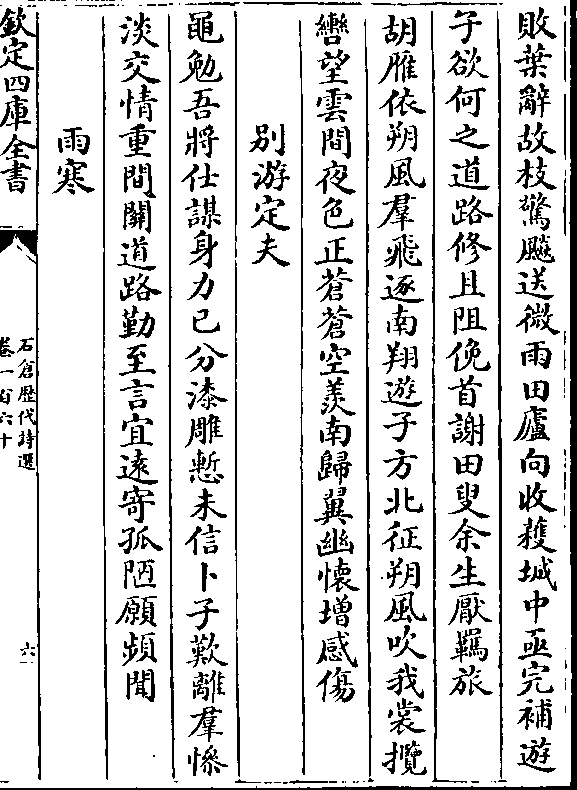 敗葉辭故枝驚飈送微雨田廬向收穫城中亟完補遊
子欲何之道路修且阻俛首謝田叟余生厭羈旅
胡雁依朔風羣飛逐南翔遊子方北征朔風吹我裳攬
轡望雲間夜色正蒼蒼空羨南歸翼幽懷增感傷
別游定夫
黽勉吾將仕謀身力已分漆雕慙未信卜子歎離羣慘
淡交情重間關道路勤至言宜逺寄孤陋願頻聞
雨寒
欽定四庫全書
石倉歷代詩選
卷一百六十
六